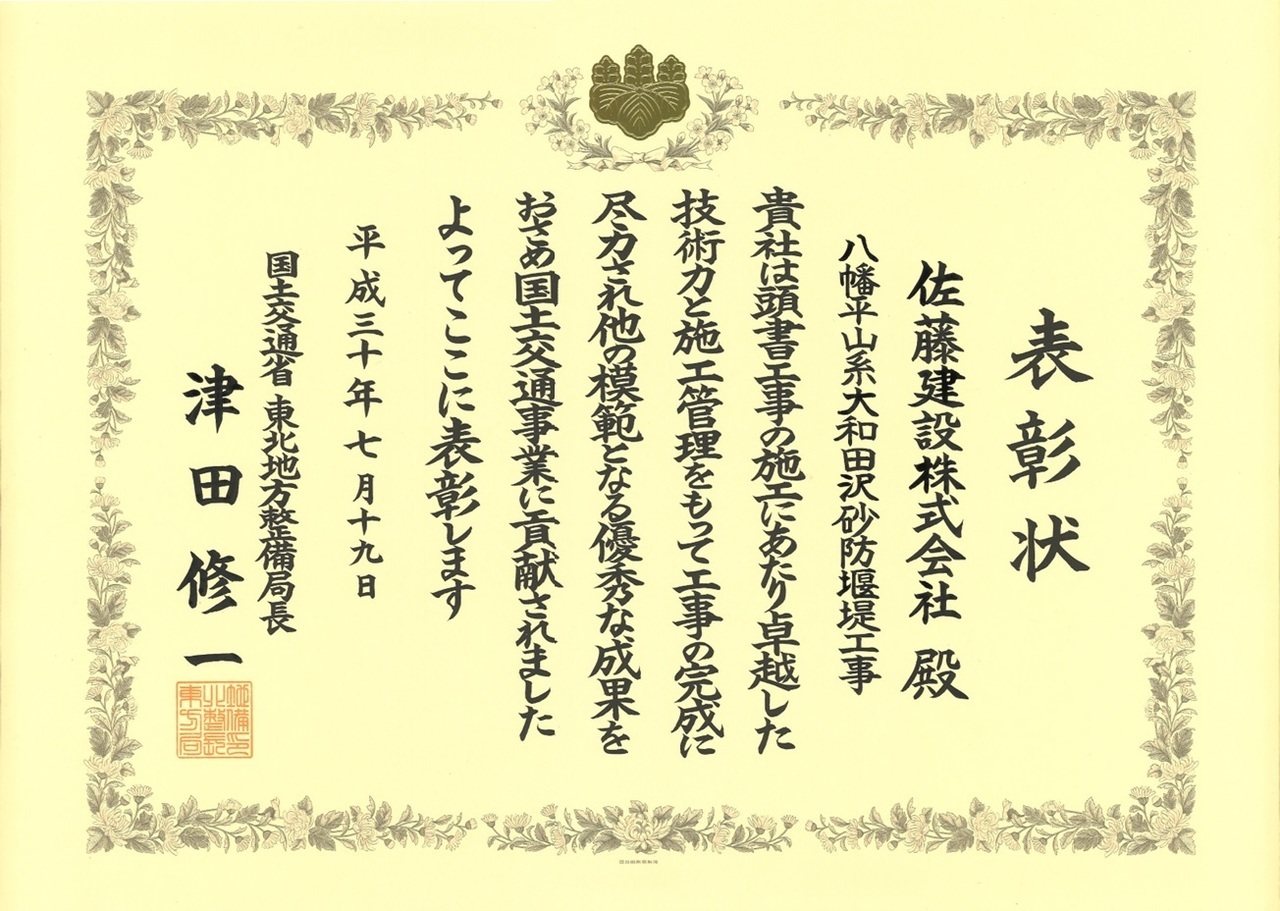 表彰状
佐藤建設株式会社 殿
八幡平山系大和田沢砂防堰堤工事
貴社は頭書工事の施工にあたり卓越した
技術力と施工管理をもって工事の完成に
尽力され他の模範となる優秀な成果を
おさめ国土交通事業に貢献されました
よってここに表彰します
平成三十年七月十九日
国土交通省 東北地方整備局長
津田修一